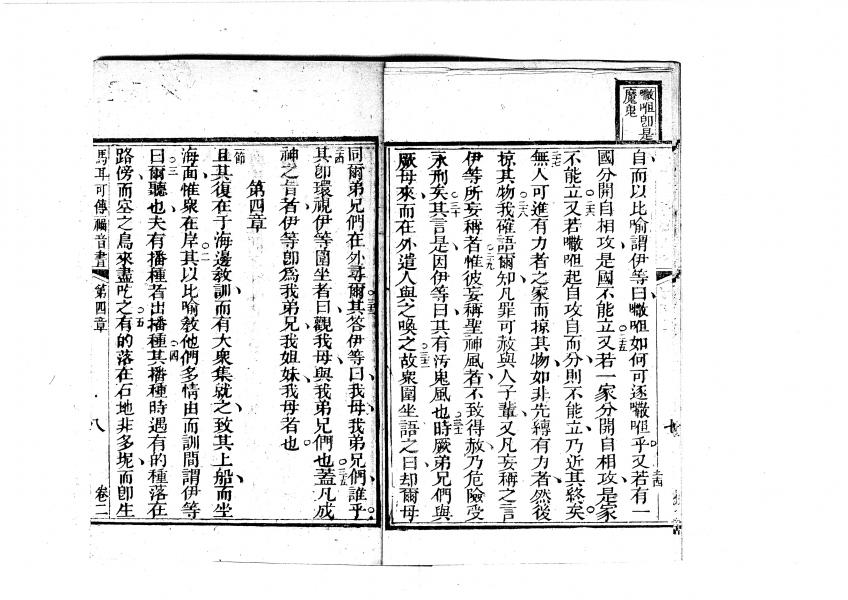 㘔咀卽是
魔鬼
自而以比喻謂伊等曰㘔咀如何可逐㘔咀乎又若有一
國分開自相攻是國不能立又若一家分開自相攻是家
不能立又若㘔咀起自攻自而分則不能立乃近其終矣
無人可進有力者之家而掠其物如非先縛有力者然後
掠其物我確語爾知凡罪可赦與人子輩又凡妄稱之言
伊等所妄稱者惟彼妄稱聖神風者不致得赦乃危險受
永刑矣其言是因伊等曰其有污鬼風也時厥弟兄們與
厥母來而在外遣人與之喚之故衆圍坐語之曰却爾母
同爾弟兄們在外尋爾其答伊等曰我母我弟兄們誰乎
其卽環視伊等圍坐者曰觀我母與我弟兄們也蓋凡成
神之旨者伊等卽爲我弟兄我姐妹我母者也
第四章
且其復在于海邊敎訓而有大衆集就之致其上船而坐
海面惟衆在岸其以比喻敎他們多情由而訓間謂伊等
曰爾聽也夫有播種者出播種其播種時遇有的種落在
路傍而空之鳥來盡吃之有的落在石地非多坭而卽生
馬耳可傳福音書 第四章 八 卷二